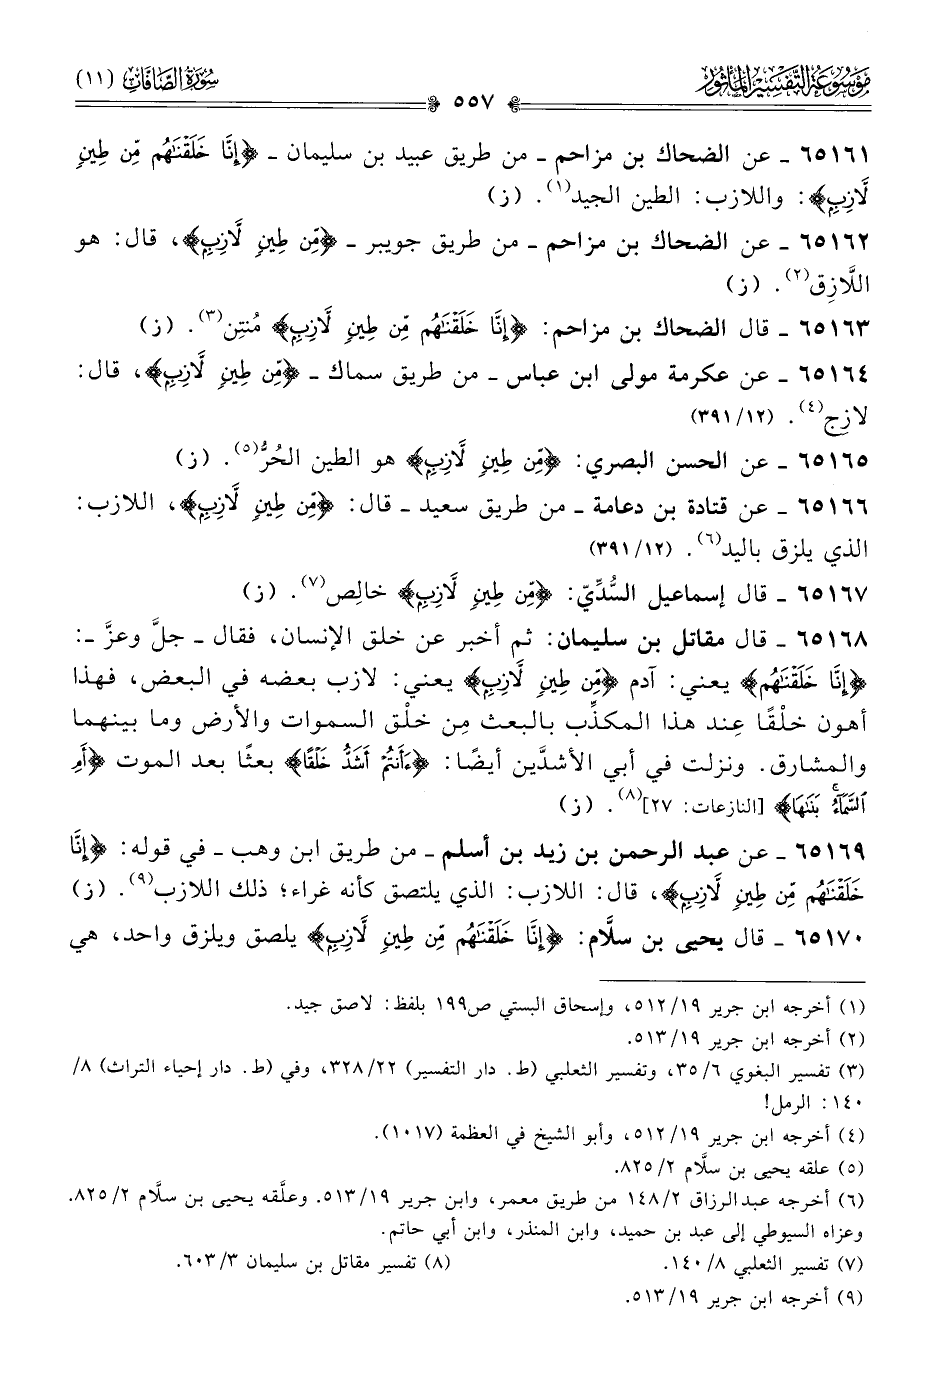 مَوْسُوعَة التَّفْسِير المَأْثُور
سُورَةُ الصَّافَّات (١١)
٥٥٧
٦٥١٦١ ـ عن الضحاك بن مزاحم ـ من طريق عبيد بن سليمان ـ ﴿إِنَّا خَلَقْنَٰهُم مِّن طِينٖ
لَّازِبِۭ﴾: واللازب: الطين الجيد(١). (ز)
٦٥١٦٢ ـ عن الضحاك بن مزاحم ـ من طريق جويبر ـ ﴿مِّن طِينٖ لَّازِبِۭ﴾، قال: هو
اللَّازِق(٢). (ز)
٦٥١٦٣ ـ قال الضحاك بن مزاحم: ﴿إِنَّا خَلَقْنَٰهُم مِّن طِينٖ لَّازِبِۭ﴾ مُنتِن(٣). (ز)
٦٥١٦٤ ـ عن عكرمة مولى ابن عباس ـ من طريق سماك ـ ﴿مِّن طِينٖ لَّازِبِۭ﴾، قال:
لازِج(٤). (٣٩١/١٢)
٦٥١٦٥ ـ عن الحسن البصري: ﴿مِّن طِينٖ لَّازِبِۭ﴾ هو الطين الحُرُّ(٥). (ز)
٦٥١٦٦ ـ عن قتادة بن دعامة ـ من طريق سعيد ـ قال: ﴿مِّن طِينٖ لَّازِبِۭ﴾، اللازب:
الذي يلزق باليد(٦). (٣٩١/١٢)
٦٥١٦٧ ـ قال إسماعيل السُّدِّيّ: ﴿مِّن طِينٖ لَّازِبِۭ﴾ خالِص(٧). (ز)
٦٥١٦٨ ـ قال مقاتل بن سليمان: ثم أخبر عن خلق الإنسان، فقال ـ جلَّ وعزَّ ـ:
﴿إِنَّا خَلَقْنَٰهُم﴾ يعني: آدم ﴿مِّن طِينٖ لَّازِبِۭ﴾ يعني: لازب بعضه في البعض، فهذا
أهون خلْقًا عِند هذا المكذِّب بالبعث مِن خلْق السموات والأرض وما بينهما
والمشارق. ونزلت في أبي الأشدَّين أيضًا: ﴿ءَأَنتُمْ أَشَدُّ خَلْقًا﴾ بعثًا بعد الموت ﴿أَمِ
ٱلسَّمَآءُۚ بَنَىٰهَا﴾ [النازعات: ٢٧](٨). (ز)
٦٥١٦٩ ـ عن عبد الرحمن بن زيد بن أسلم ـ من طريق ابن وهب ـ في قوله: ﴿إِنَّا
خَلَقْنَٰهُم مِّن طِينٖ لَّازِبِۭ﴾، قال: اللازب: الذي يلتصق كأنه غراء؛ ذلك اللازب(٩). (ز)
٦٥١٧٠ ـ قال يحيى بن سلَّام: ﴿إِنَّا خَلَقْنَٰهُم مِّن طِينٖ لَّازِبِۭ﴾ يلصق ويلزق واحد، هي
(١) أخرجه ابن جرير ٥١٢/١٩، وإسحاق البستي ص١٩٩ بلفظ: لاصق جيد.
(٢) أخرجه ابن جرير ٥١٣/١٩.
(٣) تفسير البغوي ٣٥/٦، وتفسير الثعلبي (ط. دار التفسير) ٣٢٨/٢٢، وفي (ط. دار إحياء التراث) ٨/
١٤٠: الرمل!
(٤) أخرجه ابن جرير ٥١٢/١٩، وأبو الشيخ في العظمة (١٠١٧).
(٥) علقه يحيى بن سلَّام ٨٢٥/٢.
(٦) أخرجه عبدالرزاق ١٤٨/٢ من طريق معمر، وابن جرير ٥١٣/١٩. وعلَّقه يحيى بن سلَّام ٨٢٥/٢.
وعزاه السيوطي إلى عبد بن حميد، وابن المنذر، وابن أبي حاتم.
(٧) تفسير الثعلبي ١٤٠/٨. (٨) تفسير مقاتل بن سليمان ٦٠٣/٣.
(٩) أخرجه ابن جرير ٥١٣/١٩.